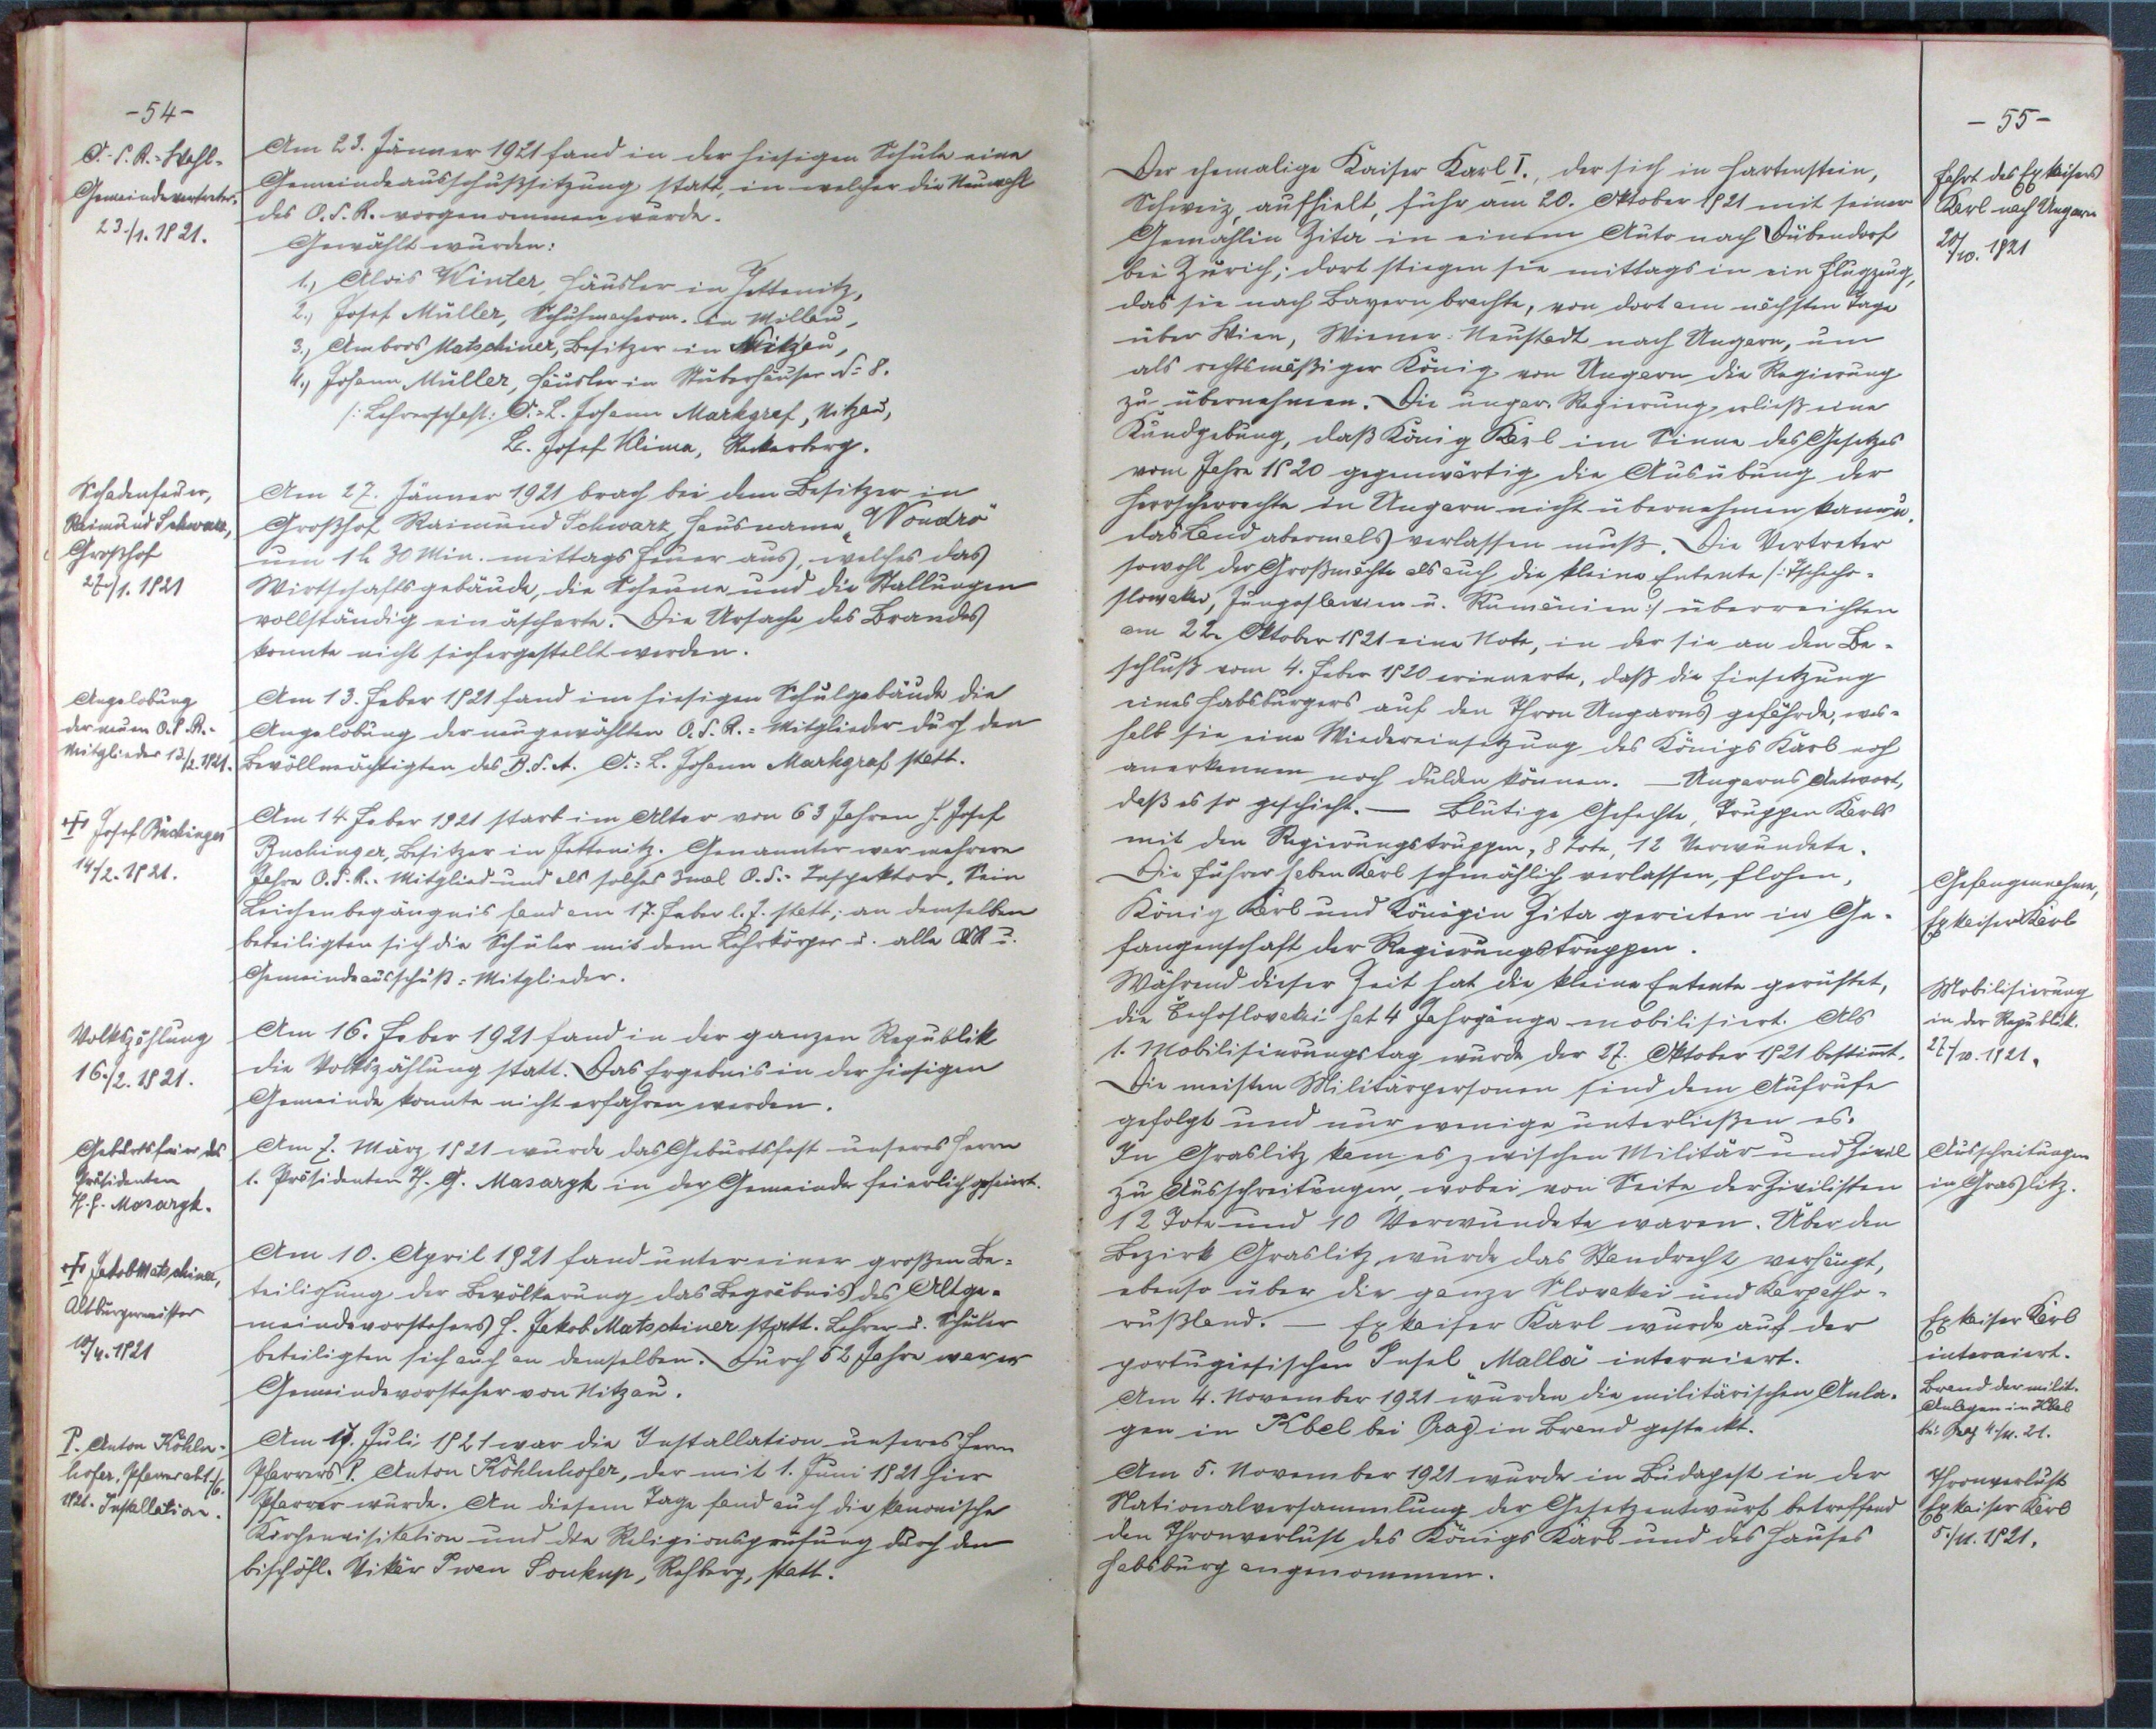 -54-
O.-S.R.-Wahl-
Gemeindevertreter.
23./1. 1921.
Am 23. Jänner 1921 fand in der hiesigen Schule eine
Gemeindeausschußsitzung statt, in welcher die Neuwahl
des O.S.R. vorgenommen wurde.
Gewählt wurden:
1., Alois Winter, Häusler in Jettenitz,
2., Josef Müller, Schuhmacherm. in Millau,
3., Ambros Matschiner, Besitzer in Nitzau,
4., Johann Müller, Häusler in Stüberhäuser N= 8.
/: Lehrerschaft: O.=L. Johann Markgraf, Nitzau,
L. Josef Klima, Stekerberg.
Schadenfeuer,
Raimund Schwarz,
Großhof
27./1. 1921
Am 27. Jänner 1921 brach bei dem Besitzer in
Großhof Raimund Schwarz Hausname „Wondro“
um 1 h 30 Min. mittags Feuer aus, welches das
Wirtschaftsgebäude, die Scheune und die Stallungen
vollständig einäscherte. Die Ursache des Brandes
konnte nicht sichergestellt werden.
Angelobung
der neuen O.S.R.-
Mitglieder 13/2. 1921.
Am 13. Feber 1921 fand im hiesigen Schulgebäude die
Angelobung der neugewählten O.S.R.=Mitglieder durch den
Bevollmächtigten des B.S.A. O.=L. Johann Markgraf statt.
† Josef Buchinger
14/2. 1921.
Am 14. Feber 1921 starb im Alter von 63 Jahren H. Josef
Buchinger, Besitzer in Jettenitz. Genannter war mehrere
Jahre O.S.R.-Mitglied und als solches 3mal O.S.-Inspektor. Sein
Leichenbegängnis fand am 17. Feber l. J. statt; an demselben
beteiligten sich die Schüler mit dem Lehrkörper u. alle OSR u.
Gemeindeausschuß=Mitglieder.
Volkszählung
16./2. 1921.
Am 16. Feber 1921 fand in der ganzen Republik
die Volkszählung statt. Das Ergebnis in der hiesigen
Gemeinde konnte nicht erfahren werden.
Geburtsfeier des
Präsidenten
T. G. Masaryk.
Am 7. März 1921 wurde das Geburtsfest unseres Herrn
1. Präsidenten T. G. Masaryk in der Gemeinde feierlich gefeiert.
† Jakob Matschiner,
Altbürgermeister
10/4. 1921
Am 10. April 1921 fand unter einer großen Be=
teiligung der Bevölkerung das Begräbnis des Altge=
meindevorstehers H. Jakob Matschiner statt. Lehrer u. Schüler
beteiligten sich auch an demselben. Durch 52 Jahre war er
Gemeindevorsteher von Nitzau.
P. Anton Köhln-
hofer, Pfarrer ab 1./6.
1921. Installation.
Am 17. Juli 1921 war die Installation unseres Herrn
Pfarrers P. Anton Köhlnhofer, der mit 1. Juni 1921 hier
Pfarrer wurde. An diesem Tage fand auch die kanonische
Kirchenvisitation und die Religionsprüfung durch den
bischöfl. Vikär Iwan Soukup, Rehberg, statt.
-55-
Der ehemalige Kaiser Karl I., der sich in Hartenstein,
Schweiz, aufhielt, fuhr am 20. Oktober 1921 mit seiner
Gemahlin Zita in einem Auto nach Dübendorf
bei Zürich; dort stiegen sie mittags in ein Flugzeug,
das sie nach Bayern brachte, von dort am nächsten Tage
über Wien, Wiener-Neustadt nach Ungarn, um
als rechtsmäßiger König von Ungarn die Regierung
zu übernehmen. Die ungar. Regierung erließ eine
Kundgebung, daß König Karl im Sinne des Gesetzes
vom Jahre 1920 gegenwärtig die Ausübung der
Herrscherrechte in Ungarn nicht übernehmen kann u.
das Land abermals verlassen muß. Die Vertreter
sowohl der Großmächte als auch die kleine Entente /: Tschecho-
slowakei, Jungoslavien u. Rumänien :/ überreichten
am 22. Oktober 1921 eine Note, in der sie an den Be-
schluß vom 4. Feber 1920 erinnerte, daß die Einsetzung
eines Habsburgers auf den Thron Ungarns gefährde, wes-
halb sie eine Wiedereinsetzung des Königs Karl noch
anerkennen noch dulden können. — Ungarns Antwort,
daß es so geschieht. — Blutige Gefechte, Truppen Karls
mit den Regierungstruppen, 8 Tote, 12 Verwundete.
Die Führer haben Karl schmählich verlassen, flohen,
König Karl und Königin Zita gerieten in Ge-
fangenschaft der Regierungstruppen.
Während dieser Zeit hat die kleine Entente gerüstet,
die Čechoslovakei hat 4 Jahrgänge mobilisiert. Als
1. Mobilisierungstag wurde der 27. Oktober 1921 bestimmt.
Die meisten Militärpersonen sind dem Aufrufe
gefolgt und nur wenige unterließen es.
In Graslitz kam es zwischen Militär und Zivil
zu Ausschreitungen, wobei von Seite der Zivilisten
12 Tote und 10 Verwundete waren. Über den
Bezirk Graslitz wurde das Standrecht verhängt,
ebenso über die ganze Slovakei und Karpatho-
rußland. — Exkaiser Karl wurde auf der
portugiesischen Insel „Malla“ interniert.
Am 4. November 1921 wurden die militärischen Anla-
gen in Kbel bei Prag in Brand gesteckt.
Am 5. November 1921 wurde in Budapest in der
Nationalversammlung der Gesetzentwurf betreffend
den Thronverlust des Königs Karl und des Hauses
Habsburg angenommen.
Fahrt des Exkaisers
Karl nach Ungarn
20/10. 1921
Gefangennahme,
Exkaiser Karl
Mobilisierung
in der Republik.
27./10. 1921.
Ausschreitungen
in Graslitz.
Exkaiser Karl
interniert.
Brand der milit.
Anlagen in Kbel
bei Prag 4./11. 21.
Thronverlust
Exkaiser Karl
5./11. 1921.